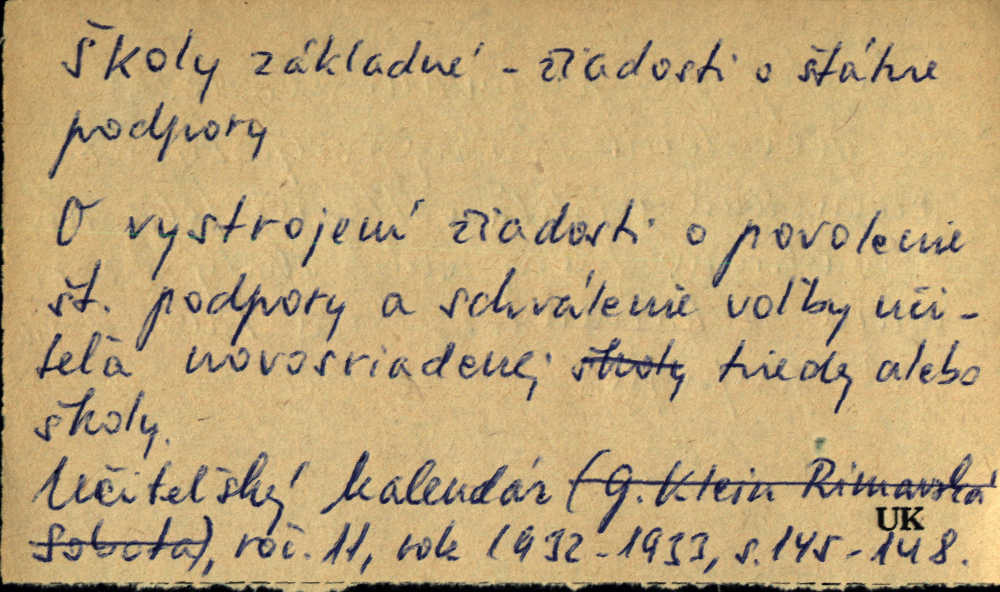 Školy základné - žiadosti o štátne
podpory
O vystrojení žiadosti o povolenie
št. podpory a schválenie voľby uči-
teľa novosriadenej školy triedy alebo
školy.
Učiteľský kalendár (G. Klein Rimavská
UK
Sobota), roč. 11, rok 1932-1933, s. 145-148.